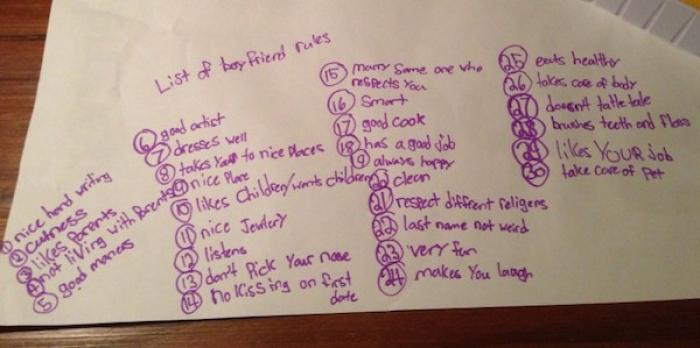 List of boyfriend rules
① nice hand writing
② cutness
③ likes parents
④ not living with parents
⑤ good maners
⑥ good artist
⑦ dresses well
⑧ takes you to nice places
⑨ nice place
⑩ likes children/wants children
⑪ nice Jewlery
⑫ listens
⑬ don't pick your nose
⑭ no kissing on first
date
⑮ marry some one who
respects you
⑯ smart
⑰ good cook
⑱ has a good job
⑲ always happy
⑳ clean
㉑ respect diffrent religens
㉒ last name not weird
㉓ very fun
㉔ makes you laugh
㉕ eats healthy
㉖ takes care of body
㉗ doesn't tattle tale
㉘ brushes teeth and floss
㉙ likes YOUR job
㉚ take care of pet